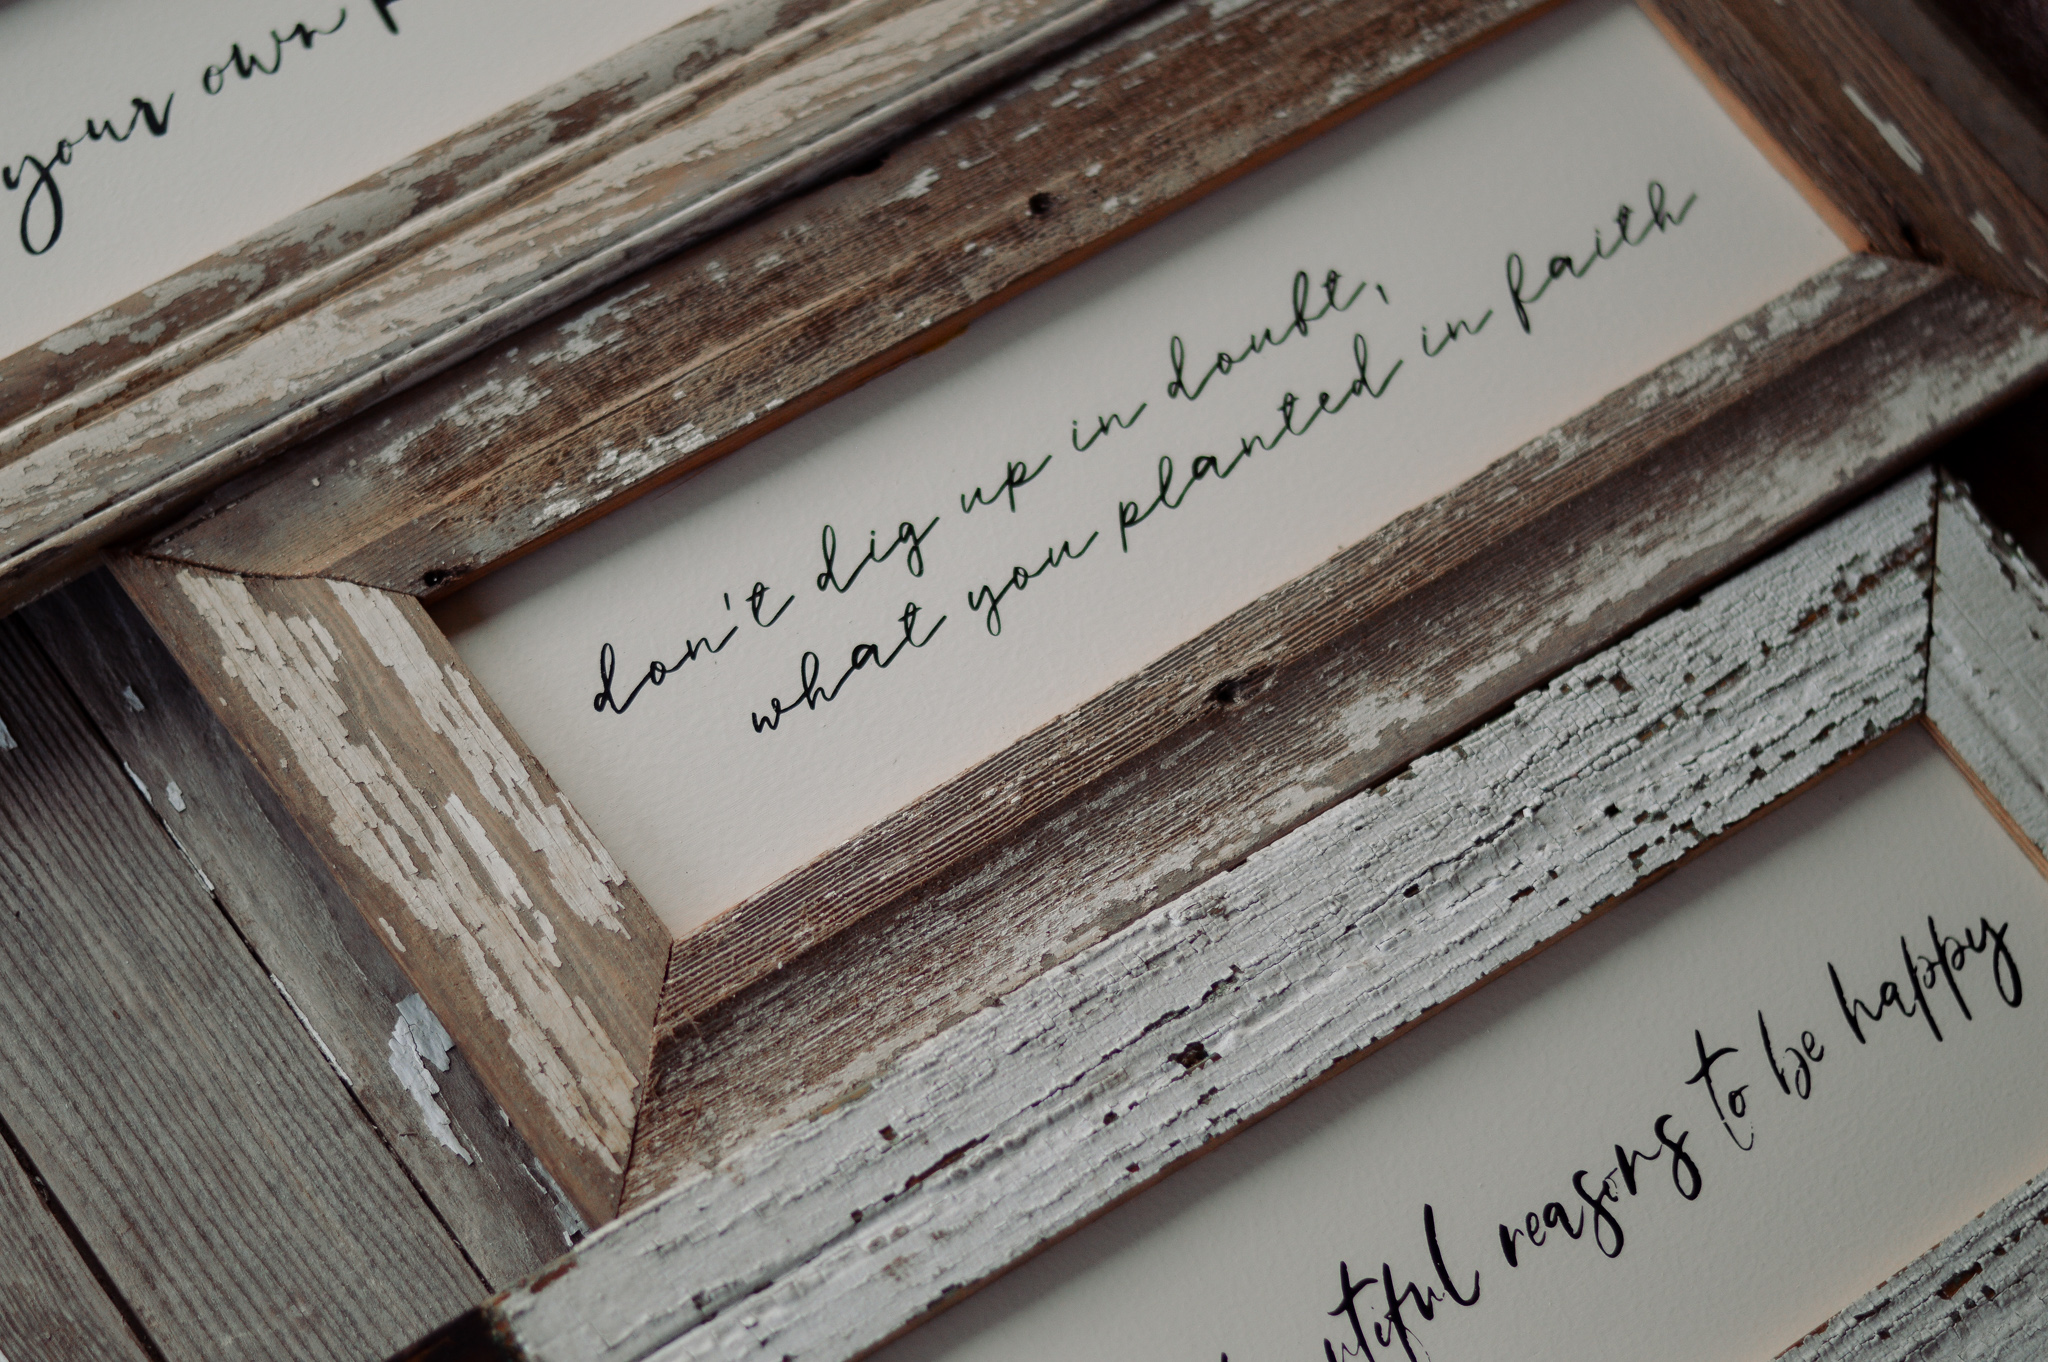 your own
don't dig up in doubt,
what you planted in faith
reasons to be happy